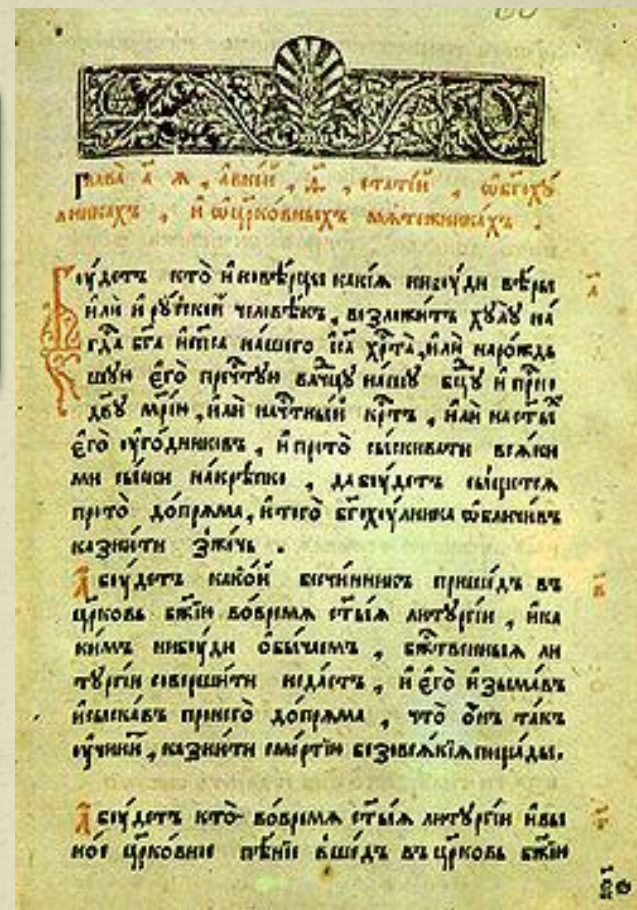 Глава̀ а҃ я , а҆ в̾не́й , ѳ҃ , стате́й , ѡ҆ бг҃оху́
лникахъ , и҆ ѡ҆ цр҃ко́вныхъ мѧте́жникахъ .
Бꙋ́детъ кто̀ и҆нове́рцы какі́ѧ нибꙋ́ди вѣ́ры
и҆лѝ и҆ рꙋ́ской человѣ́къ , возложи́тъ хꙋлꙋ̀ на́
гдⷭ҇а бг҃а и҆ сп҃са на́шего і҆с҃а хрⷭ҇та̀ , и҆лѝ наро́ждь
шꙋю є҆го̀ пречⷭ҇тꙋю влⷣчцꙋ на́шꙋ бцⷣꙋ и҆ прⷭ҇но
дв҃ꙋ мр҃і́ю , и҆лѝ начⷭ҇тны́й крⷭ҇тъ , и҆лѝ на ст҃ы́хъ
є҆го̀ ᲂу҆го́дниковъ , и҆ прото̀ сы́скивати всѧ́ки
ми сы́ски накрѣ́пко , да бꙋ́детъ сы́щетсѧ
прото̀ до́прѧма , и҆ того̀ бг҃охꙋ́лника ѡ҆бличи́въ
казни́ти зже́чь .
А҆ бꙋ́детъ како́й безчи́нникъ прише́дъ въ
цр҃ковь бж҃ію во́время ст҃ы́ѧ литꙋргі́и , и҆ ка
ки́мъ нибꙋ́ди ѻ҆бы́чаемъ , бж҃е́ственныѧ ли
тꙋргі́и соверши́ти неда́стъ , и҆ є҆го̀ и҆зыма́въ
и҆ сыска́въ пронего̀ до́прѧма , что̀ ѻ҆́нъ та́къ
ᲂу҆чини́тъ , казни́ти сме́ртію безовсѧ́кіѧ поща́ды .
А҆ бꙋ́детъ кто̀ во́время ст҃ы́ѧ литꙋргі́и и҆ вы
ное цр҃ко́вное пѣ́ніе вше́дъ въ цр҃ковь бж҃ію